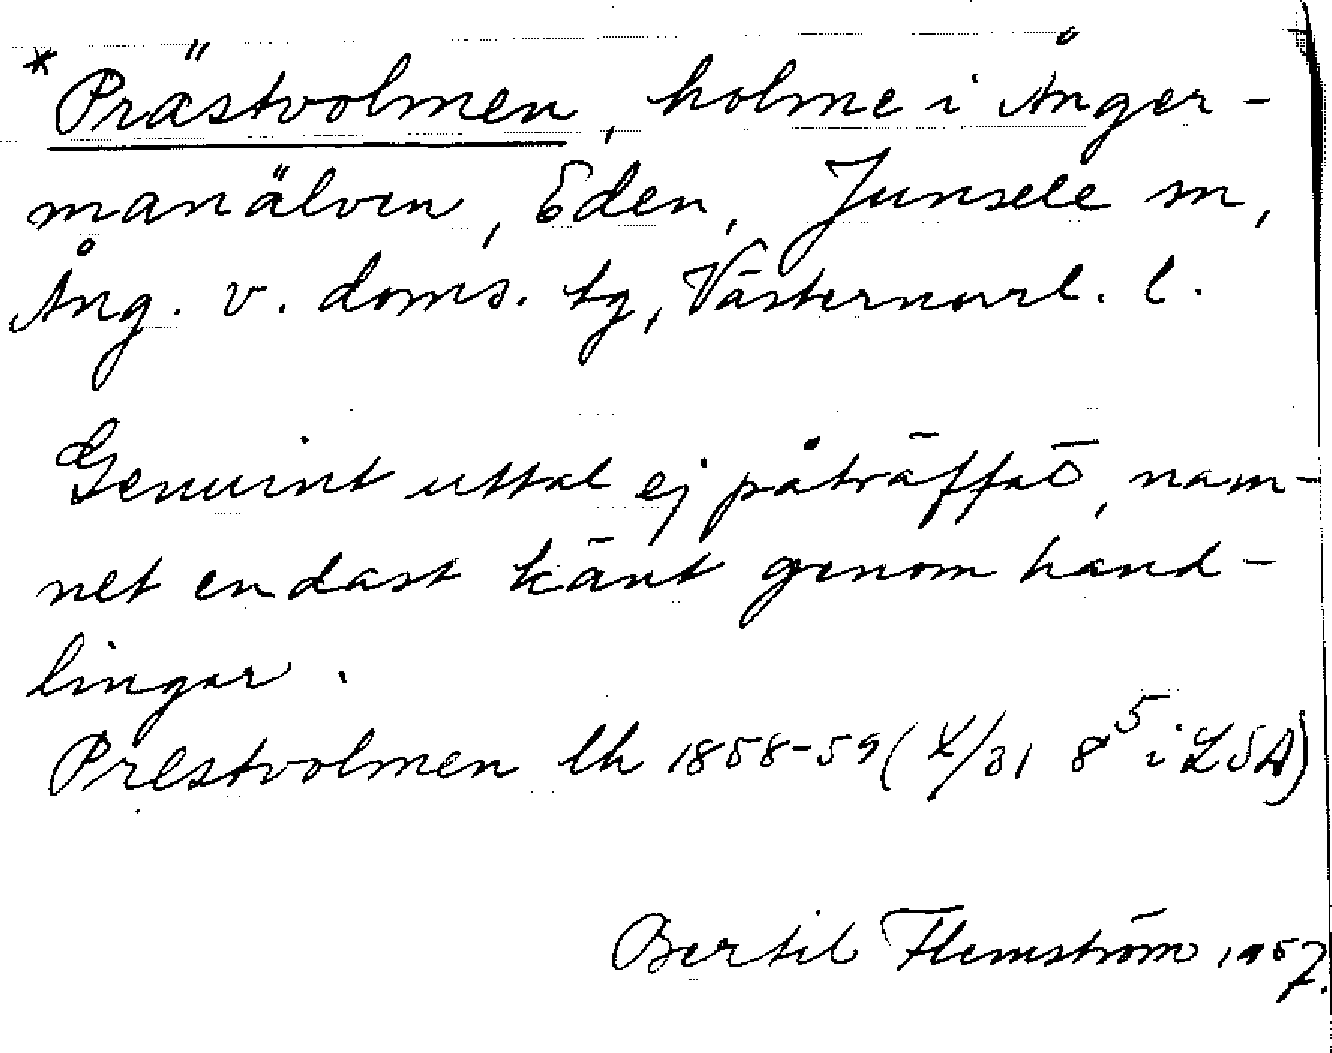 * Prästvolmen, holme i Ånger-
manälven, Eden, Junsele sn,
Ång. v. doms. tg, Västernorrl. l.
Genuint uttal ej påträffat, nam-
net endast känt genom hand-
lingar.
Prestvolmen lh 1858-59 (L/31 8⁵ i LSA)
Bertil Flemström 1957.